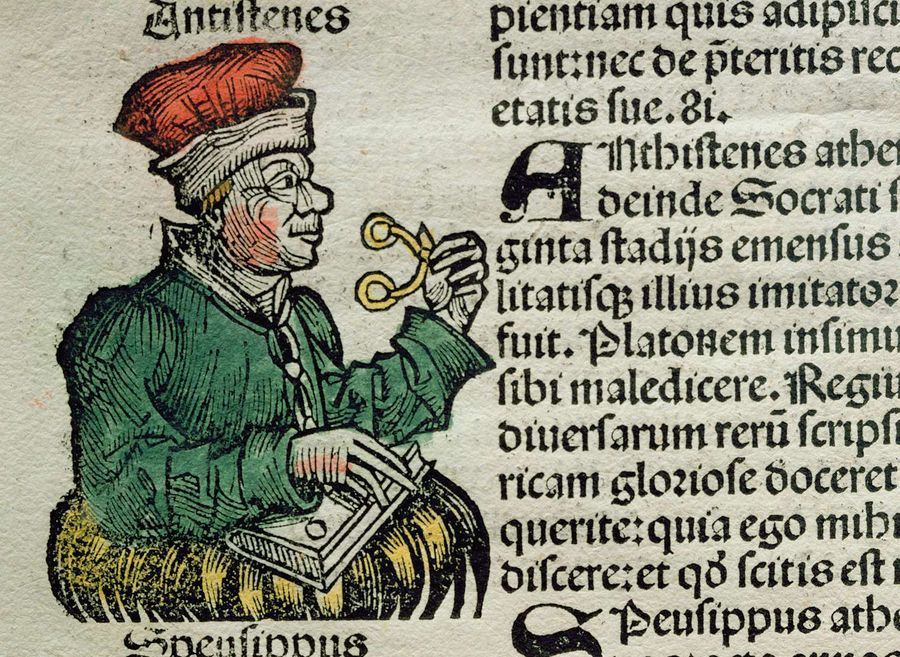 Antistenes
pientiam quis adipisci
sunt: nec de p̄teritis rec
etatis sue. 81.
ANthistenes athe
deinde Socrati s
ginta stadijs emensus
litatisqꝫ illius imitator
fuit. Platonem insimu
sibi maledicere. Regiu
diuersarum rerū scripsi
ricam gloriose doceret
querite: quia ego mihi
discere: et qđ scitis est
SPeusippus athe
Speusippus